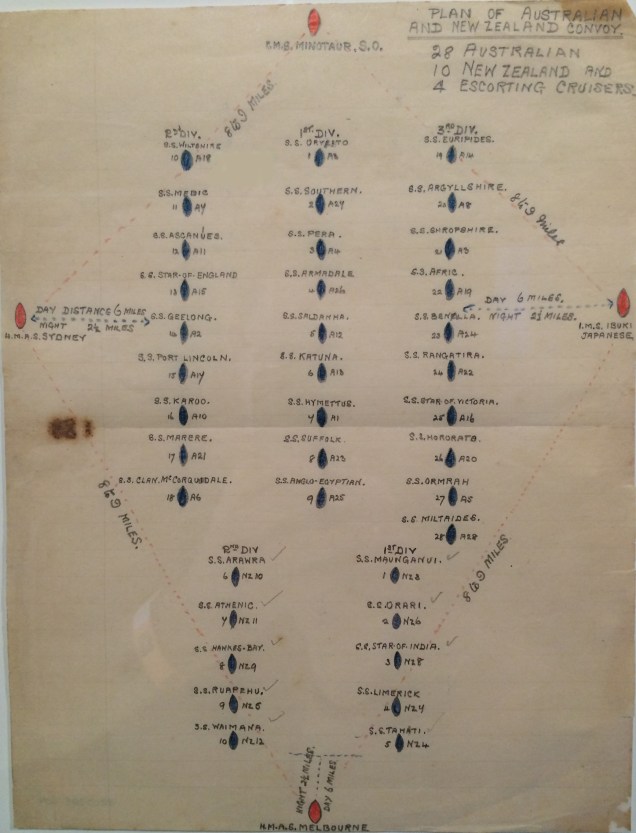 PLAN OF AUSTRALIAN
AND NEW ZEALAND CONVOY.
28 AUSTRALIAN
10 NEW ZEALAND AND
4 ESCORTING CRUISERS.
H.M.S. MINOTAUR, S.O.
8 to 9 MILES
8 to 9 Miles
2nd DIV.
S.S. WILTSHIRE
10 A18
S.S. MEDIC
11 A7
S.S. ASCANUES.
12 A11
S.S. STAR-OF-ENGLAND
13 A15
S.S. GEELONG.
14 A2
S.S. PORT LINCOLN.
15 A17
S.S. KAROO.
16 A10
S.S. MARERE.
17 A21
S.S. CLAN. McCORQUODALE.
18 A6
1ST DIV.
S.S. ORVIETO
1 A3
S.S. SOUTHERN.
2 A27
S.S. PERA.
3 A4
S.S. ARMADALE
4 A26
S.S. SALDANHA.
5 A12
S.S. KATUNA.
6 A13
S.S. HYMETTUS.
7 A1
S.S. SUFFOLK.
8 A23
S.S. ANGLO-EGYPTIAN.
9 A25
3RD DIV.
S.S. EURIPIDES.
19 A14
S.S. ARGYLLSHIRE.
20 A8
S.S. SHROPSHIRE.
21 A9
S.S. AFRIC.
22 A19
S.S. BENALLA.
23 A24
S.S. RANGATIRA.
24 A22
S.S. STAR-OF-VICTORIA.
25 A16
S.S. HORORATA.
26 A20
S.S. ORMRAH
27 A5
S.S. MILTAIDES.
28 A28
DAY DISTANCE 6 MILES
NIGHT 2½ MILES
H.M.A.S. SYDNEY
DAY 6 MILES.
NIGHT 2½ MILES.
I.M.S. IBUKI
JAPANESE.
8 to 9 MILES.
8 to 9 MILES
2ND DIV
S.S. ARAWRA
6 NZ10
S.S. ATHENIC.
7 NZ11
S.S. HAWKES-BAY.
8 NZ9
S.S. RUAPEHU.
9 NZ5
S.S. WAIMANA.
10 NZ12
1ST DIV
S.S. MAUNGANUI.
1 NZ3
S.S. ORARI.
2 NZ6
S.S. STAR-OF INDIA.
3 NZ8
S.S. LIMERICK
4 NZ7
S.S. TAHATI.
5 NZ4
NIGHT 2½ MILES.
DAY 6 MILES
H.M.A.S. MELBOURNE